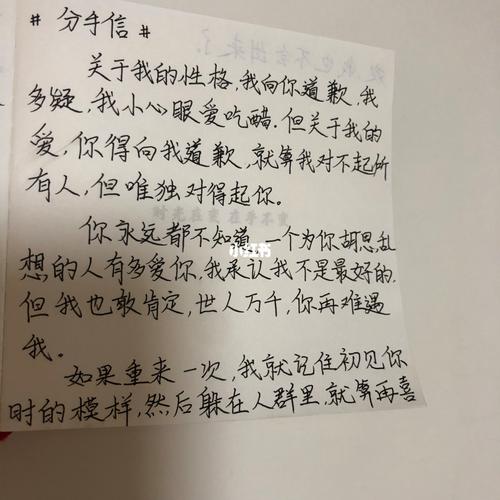 # 分手信 #
关于我的性格,我向你道歉,我
多疑,我小心眼爱吃醋.但关于我的
爱,你得向我道歉,就算我对不起所
有人,但唯独对得起你。
你永远都不知道 一个为你胡思乱
小红书
想的人有多爱你.我承认我不是最好的.
但我也敢肯定,世人万千,你再难遇
我。
如果重来一次,我就记住初见你
时的模样,然后躲在人群里,就算再喜